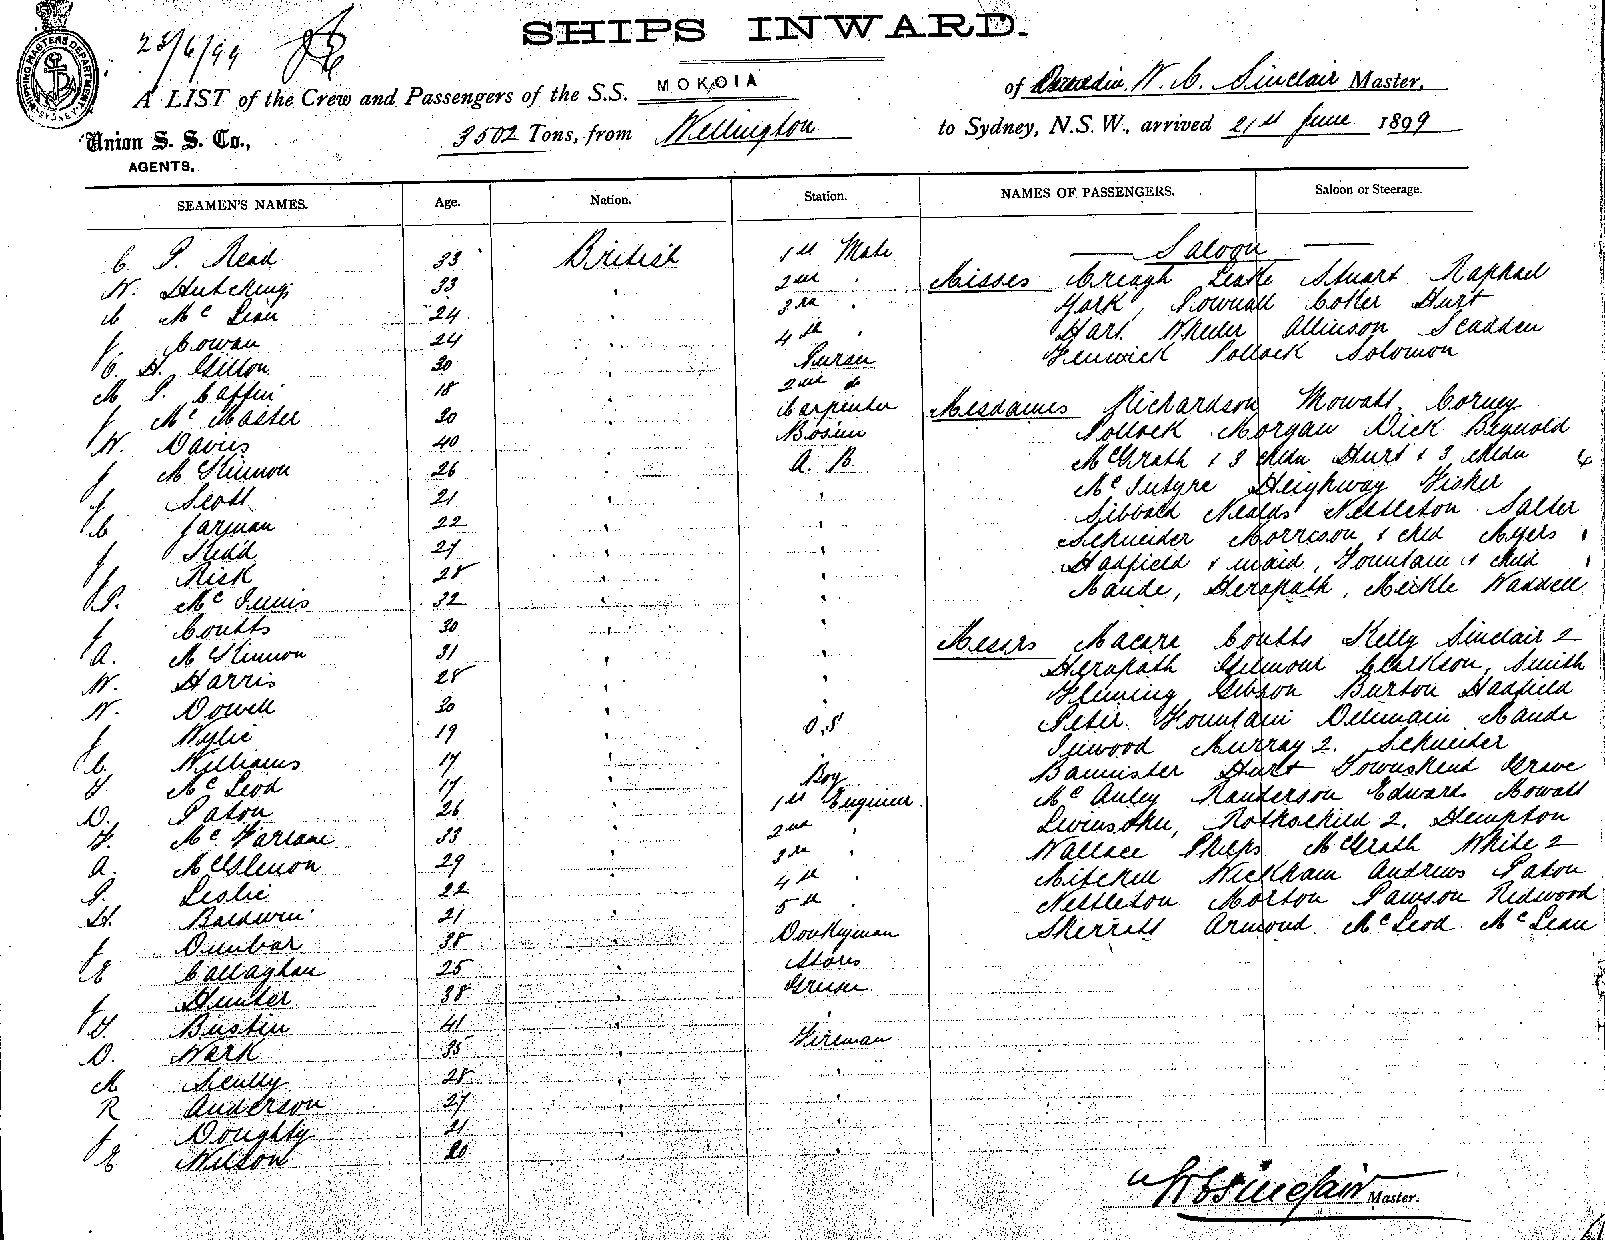 SHIPS INWARD.
SHIPPING MASTERS DEPARTMENT SYDNEY
A LIST of the Crew and Passengers of the S.S. MOKOIA of Dunedin, W. C. Sinclair Master,
Union S. S. Co.,
AGENTS.
3502 Tons, from Wellington to Sydney, N.S.W., arrived 21st June 1899
SEAMEN'S NAMES. Age. Nation. Station. NAMES OF PASSENGERS. Saloon or Steerage.
C. P. Read 33 British 1st Mate
W. Hutchings 33 " 2nd "
C McLean 24 " 3rd "
J Cowan 24 " 4th "
C. H. Gillon 30 Purser
M P. Caffin 18 2nd do
J McMaster 30 Carpenter
W. Davies 40 Bosun
J McKinnon 26 A. B.
J Scott 21 "
C Jarman 22 "
J Kidd 27 "
J Risk 28 "
P. McInnis 32 "
J Coutts 30 "
A. McKinnon 31 "
W. Harris 28 "
W. Dowell 30 "
J Wylie 19 O.S
C. Williams 17 "
McLeod 17 Boy
D. Paton 26 1st Engineer
McFarlane 33 2nd "
A. 29 3rd "
P. Leslie 22 4th "
H. Baldwin 21 5th "
J Dunbar 38 Donkeyman
E Callaghan 25 Stores
J Hunter 38 Greaser
Busten 41 "
D. Wark 35 Fireman
M Scully 28 "
R Anderson 27 "
J Doughty 21 "
E Wilson 20 "
Saloon
Misses Creagh Leake Stuart Raphael
York, Pownall Coker Hurt
Hart. Wheeler Allinson Scadden
Fenwick Pollock Solomon
Mesdames Richardson Mowatt Corney
Pollock Morgan Dick Beynold
McGrath & 3 chldn Hurt & 3 chldn
McIntyre Heighway Fisher
Sibbald Nealds Nettleton Salter
Schneider Morrison & chld Myers
Hadfield & maid, Fountain & child
Maude, Herapath, Meikle Waddell
Messrs Macara Coutts Kelly Sinclair 2
Herapath Gilmour Clarkson, Smith
Fleming Gibson Burton Hadfield
Peter Fountain Delmain Maude
Inwood Murray 2. Schneider
Bannister Hurt Townshend Grave
McAuley Randerson Edward Mowatt
Rothschild 2. Hempton
Wallace Phelps McGrath White 2
Mitchell Wickham Andrews Paton
Nettleton Morton Pawson Redwood
Skerrett Armond McLeod McLean
W C Sinclair Master.